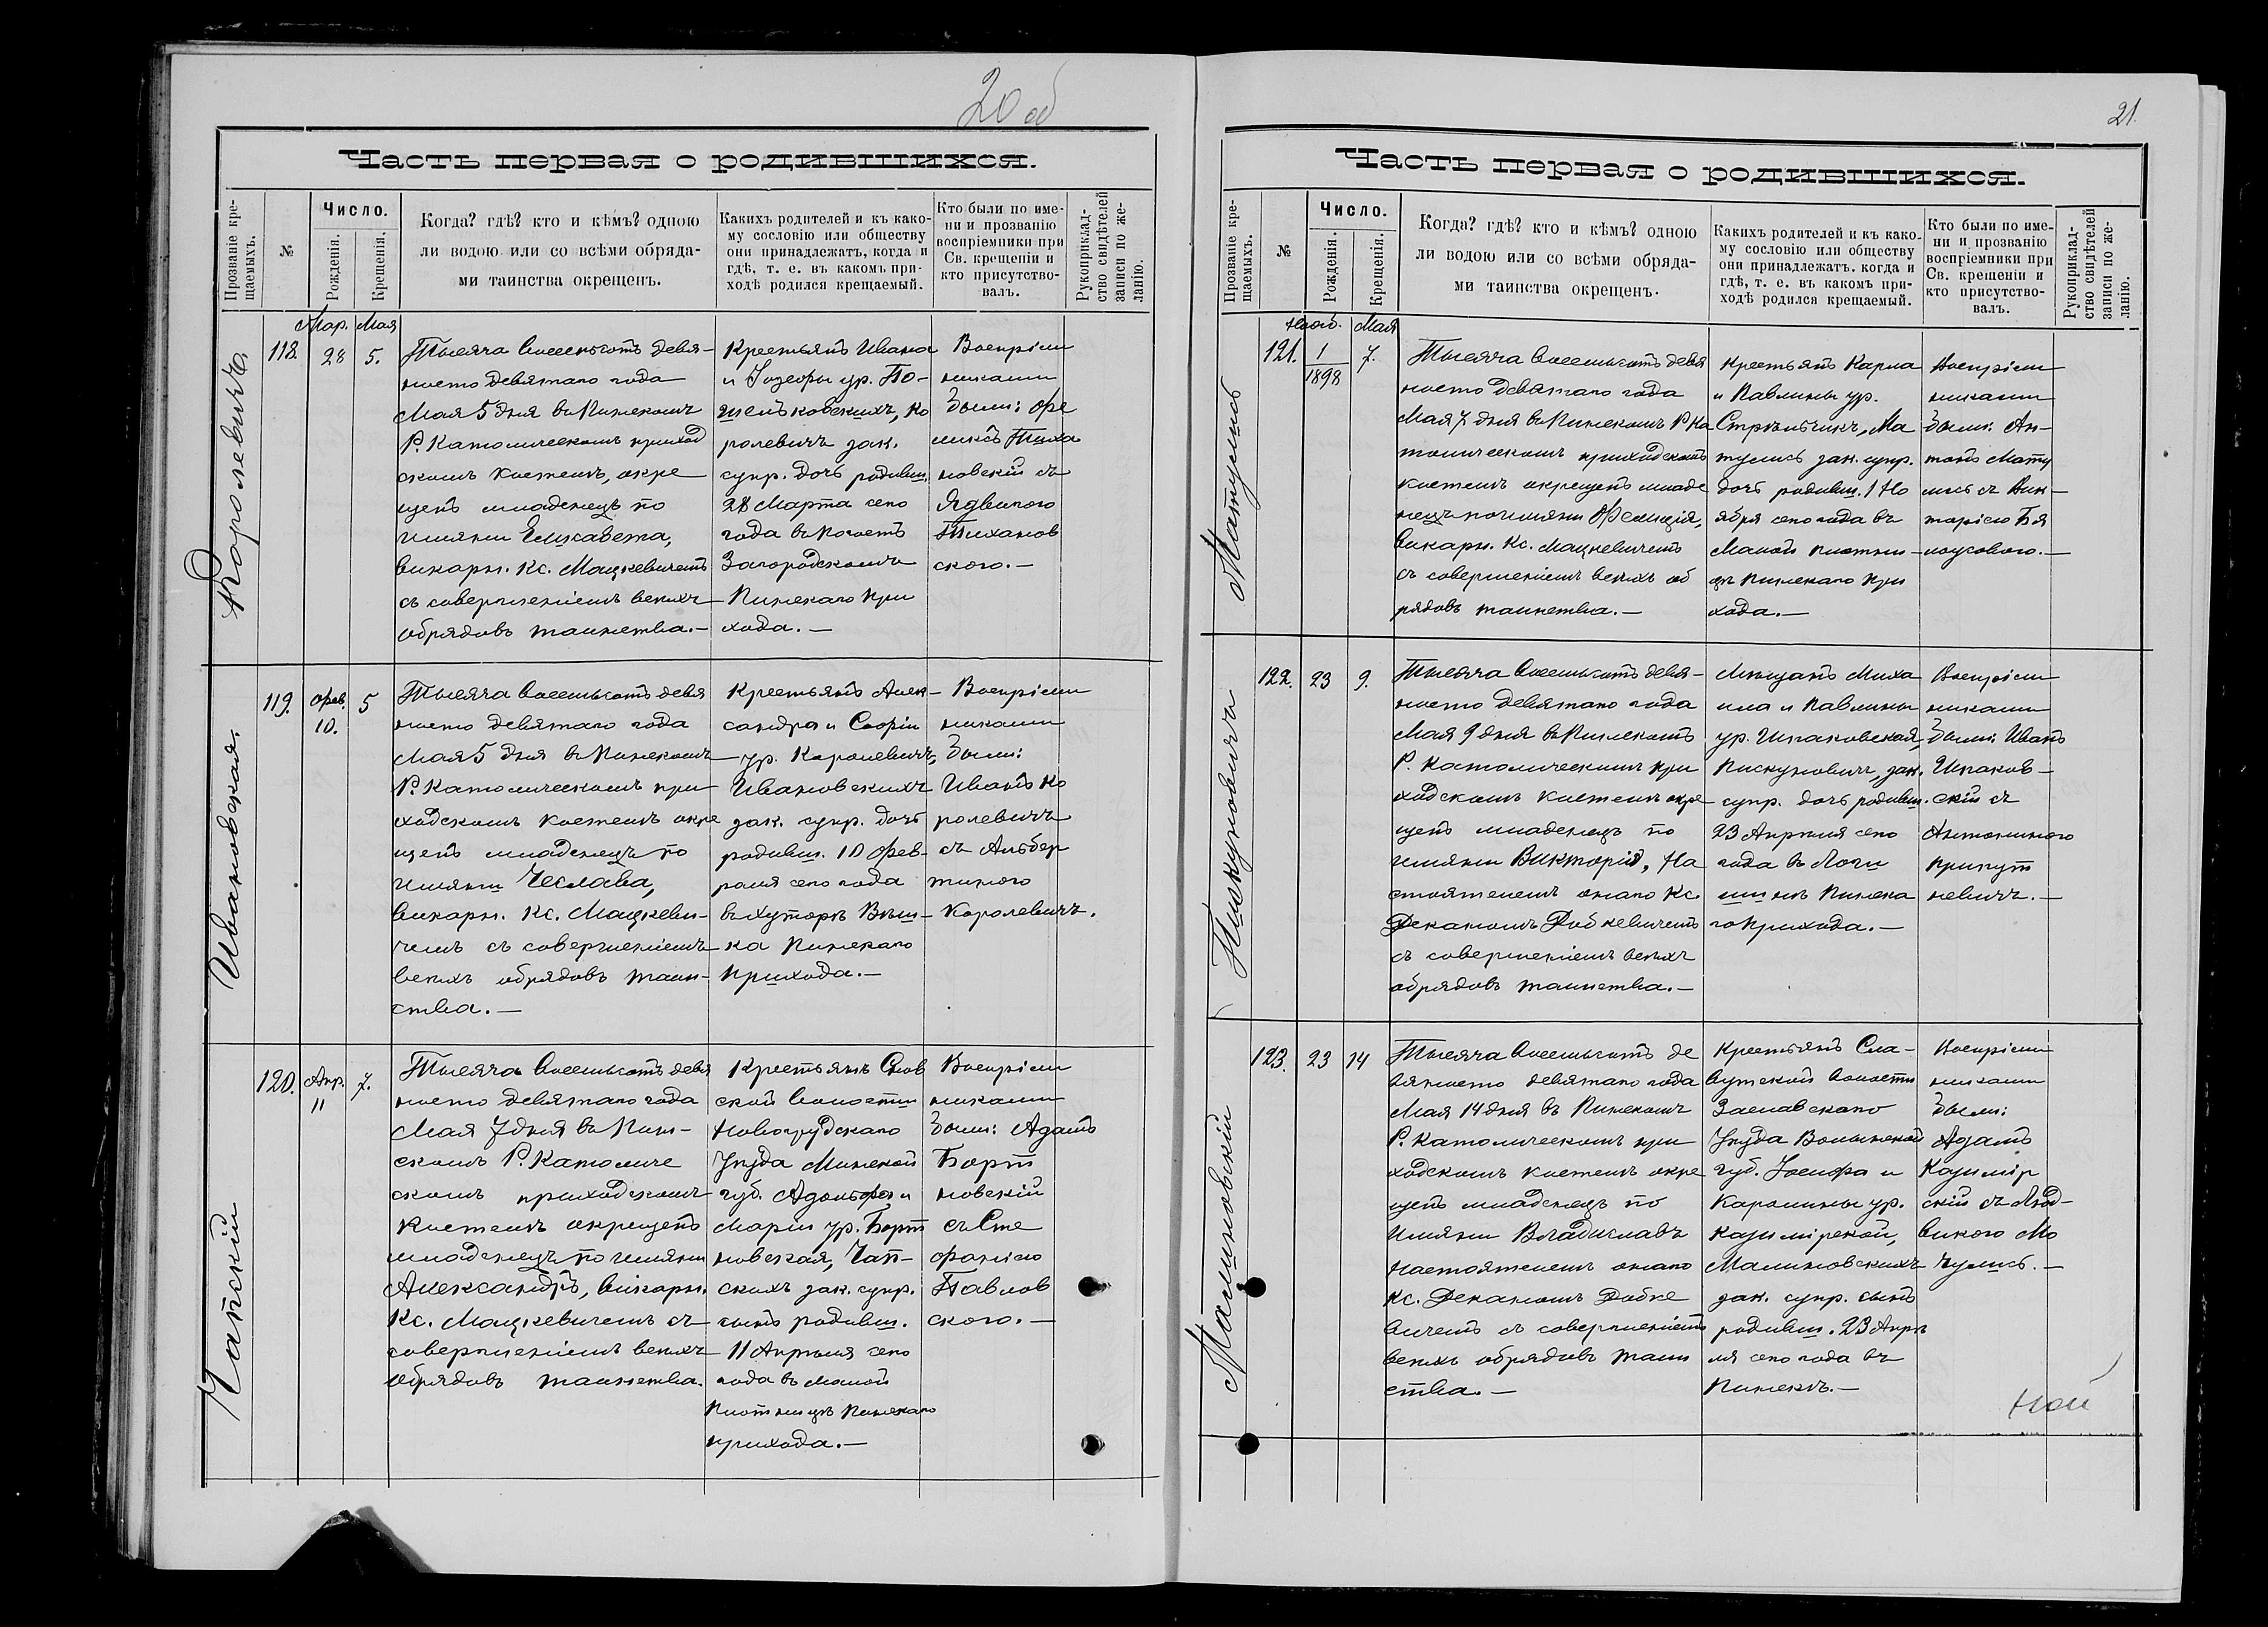 20 об
Часть первая о родившихся.
Прозваніе кре-
щаемыхъ.
№
Число.
Рожденія.
Крещенія.
Когда? гдѣ? кто и кѣмъ? одною
ли водою или со всѣми обряда-
ми таинства окрещенъ.
Какихъ родителей и къ како-
му сословію или обществу
они принадлежатъ, когда и
гдѣ, т. е. въ какомъ при-
ходѣ родился крещаемый.
Кто были по име-
ни и прозванію
воспріемники при
Св. крещеніи и
кто присутство-
валъ.
Рукоприклад-
ство свидѣтелей
записи по же-
ланію.
Королевичъ.
118.
Мар.
28
Мая
5.
Тысяча восемьсотъ девя-
носто девятаго года
Мая 5 дня въ Пинскомъ
Р. Католическомъ приход
скомъ костелѣ, окре
щенъ младенецъ по
имяни Елисавета,
викарн. Кс. Мацкевичемъ
съ совершеніемъ всѣхъ
обрядовъ таинства.—
Крестьянъ Ивана
и Іозефы ур. По-
ролевичъ зак.
супр. дочь родивш.
28 Марта сего
года въ погостѣ
Загородскомъ
Пинскаго при
хода.—
Воспріем
никами
были: Фе
ликсъ Тиха
новскій съ
Ядвигою
Тиханов
ского.—
Ивановская.
119.
Фев.
10.
5
Тысяча восемьсотъ девя
носто девятаго года
Мая 5 дня въ Пинскомъ
Р. Католическомъ при
ходскомъ костелѣ окре
щенъ младенецъ по
имяни Чеслава,
викарн. Кс. Мацкеви-
чемъ съ совершеніемъ
всѣхъ обрядовъ таин-
ства.—
Крестьянъ Алек-
сандра и Софіи
ур. Королевичъ,
Ивановскихъ
зак. супр. дочь
родивш. 10 Фев-
раля сего года
въ хуторѣ Выш-
ка Пинскаго
прихода.—
Воспріем
никами
были:
Иванъ Ко
ролевичъ
съ Альбер
тиною
Королевичъ.
Чапскій
120.
Апр.
11
7.
Тысяча восемьсотъ девя
носто девятаго года
Мая 7 дня въ Пин-
скомъ Р. Католиче
скомъ приходскомъ
костелѣ окрещенъ
младенецъ по имяни
Александръ, викарн.
Кс. Мацкевичемъ съ
совершеніемъ всѣхъ
обрядовъ таинства.
Крестьянъ
ской волости
Новогрудскаго
Уѣзда Минской
губ. Адольфа и
Маріи ур. Борт
новская, Чап-
скихъ зак. супр.
сынъ родивш.
11 Апрѣля сего
года въ малой
Плотницѣ Пинскаго
прихода.—
Воспріем
никами
были: Адамъ
Борт
новскій
съ Сте
фаніею
Павлов
ского.—
21.
Часть первая о родившихся.
Прозваніе кре-
щаемыхъ.
№
Число.
Рожденія.
Крещенія.
Когда? гдѣ? кто и кѣмъ? одною
ли водою или со всѣми обряда-
ми таинства окрещенъ.
Какихъ родителей и къ како-
му сословію или обществу
они принадлежатъ. когда и
гдѣ, т. е. въ какомъ при-
ходѣ родился крещаемый.
Кто были по име-
ни и прозванію
воспріемники при
Св. крещеніи и
кто присутство-
валъ.
Рукоприклад-
ство свидѣтелей
записи по же-
ланію.
Матулисъ
121.
Нояб.
1
1898
Мая
7.
Тысяча восемьсотъ девя
носто девятаго года
Мая 7 дня въ Пинскомъ Р. Ка
толическомъ приходскомъ
костелѣ окрещенъ младе
нецъ по имяни Фелиція,
викарн. Кс. Мацкевичемъ
съ совершеніемъ всѣхъ об
рядовъ таинства.—
Крестьянъ Карла
и Павлины ур.
Стрѣльчикъ, Ма
тулисъ зак. супр.
дочь родивш. 1 Но
ября сего года въ
Малой Плотни-
цѣ Пинскаго при
хода.—
Воспріем
никами
были: Ан-
тонъ Мату
лисъ съ Вик-
торіею Бя
лоусового.—
Пискуновичъ
122.
23
9.
Тысяча восемьсотъ девя-
носто девятаго года
Мая 9 дня въ Пинскомъ
Р. Католическомъ при
ходскомъ костелѣ окре
щенъ младенецъ по
имяни Викторія, На
стоятелемъ онаго Кс.
Деканомъ Добкевичемъ
съ совершеніемъ всѣхъ
обрядовъ таинства.—
Мѣщанъ Миха
ила и Павлины
ур. Шпаковская,
Пискуновичъ, зак.
супр. дочь родивш.
23 Апрѣля сего
года въ Логи
шинѣ Пинска
го прихода.—
Воспріем
никами
были: Иванъ
Шпаков-
скій съ
Антониною
Припут
невичъ.—
Малиновскій
123.
23
14
Тысяча восемьсотъ де
вяносто девятаго года
Мая 14 дня въ Пинскомъ
Р. Католическомъ при
ходскомъ костелѣ окре
щенъ младенецъ по
имяни Владиславъ
Настоятелемъ онаго
Кс. Деканомъ Добке
вичемъ съ совершеніемъ
всѣхъ обрядовъ таин
ства.—
Крестьянъ Сла-
вутской волости
Заславскаго
Уѣзда Волынской
губ. Іосифа и
Каролины ур.
Казимірской,
Малиновскихъ
зак. супр. сынъ
родивш. 23 Апрѣ
ля сего года въ
Пинскѣ.—
Воспріем
никами
были:
Адамъ
Казимір
скій съ Люд-
викою Мо
чулисъ.—